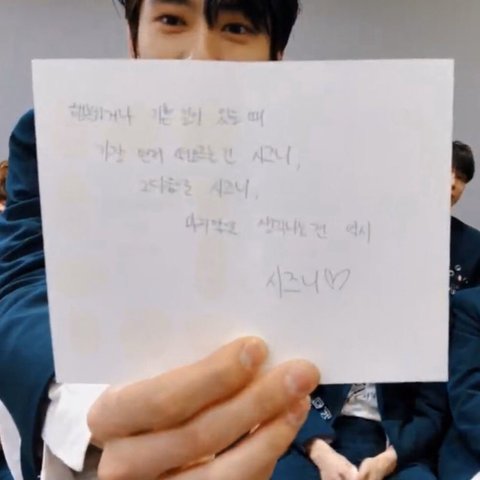 행복하거나 기쁜 일이 있을 때
가장 먼저 떠오르는 건 시즈니,
그다음은 시즈니,
마지막으로 생각나는 건 역시
시즈니♡